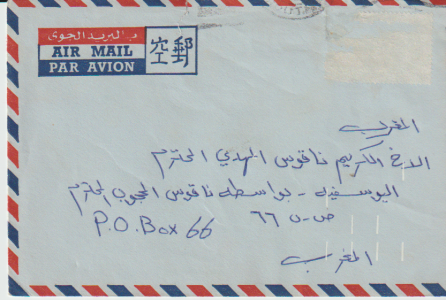 بالبريد الجوي
AIR MAIL
PAR AVION
空郵
المغرب
الاخ الكريم ناقوس المهدي المحترم
اليوسفية - بواسطة ناقوس المحجوب المحترم
ص.ب ٦٦
P.O.Box 66
المغرب